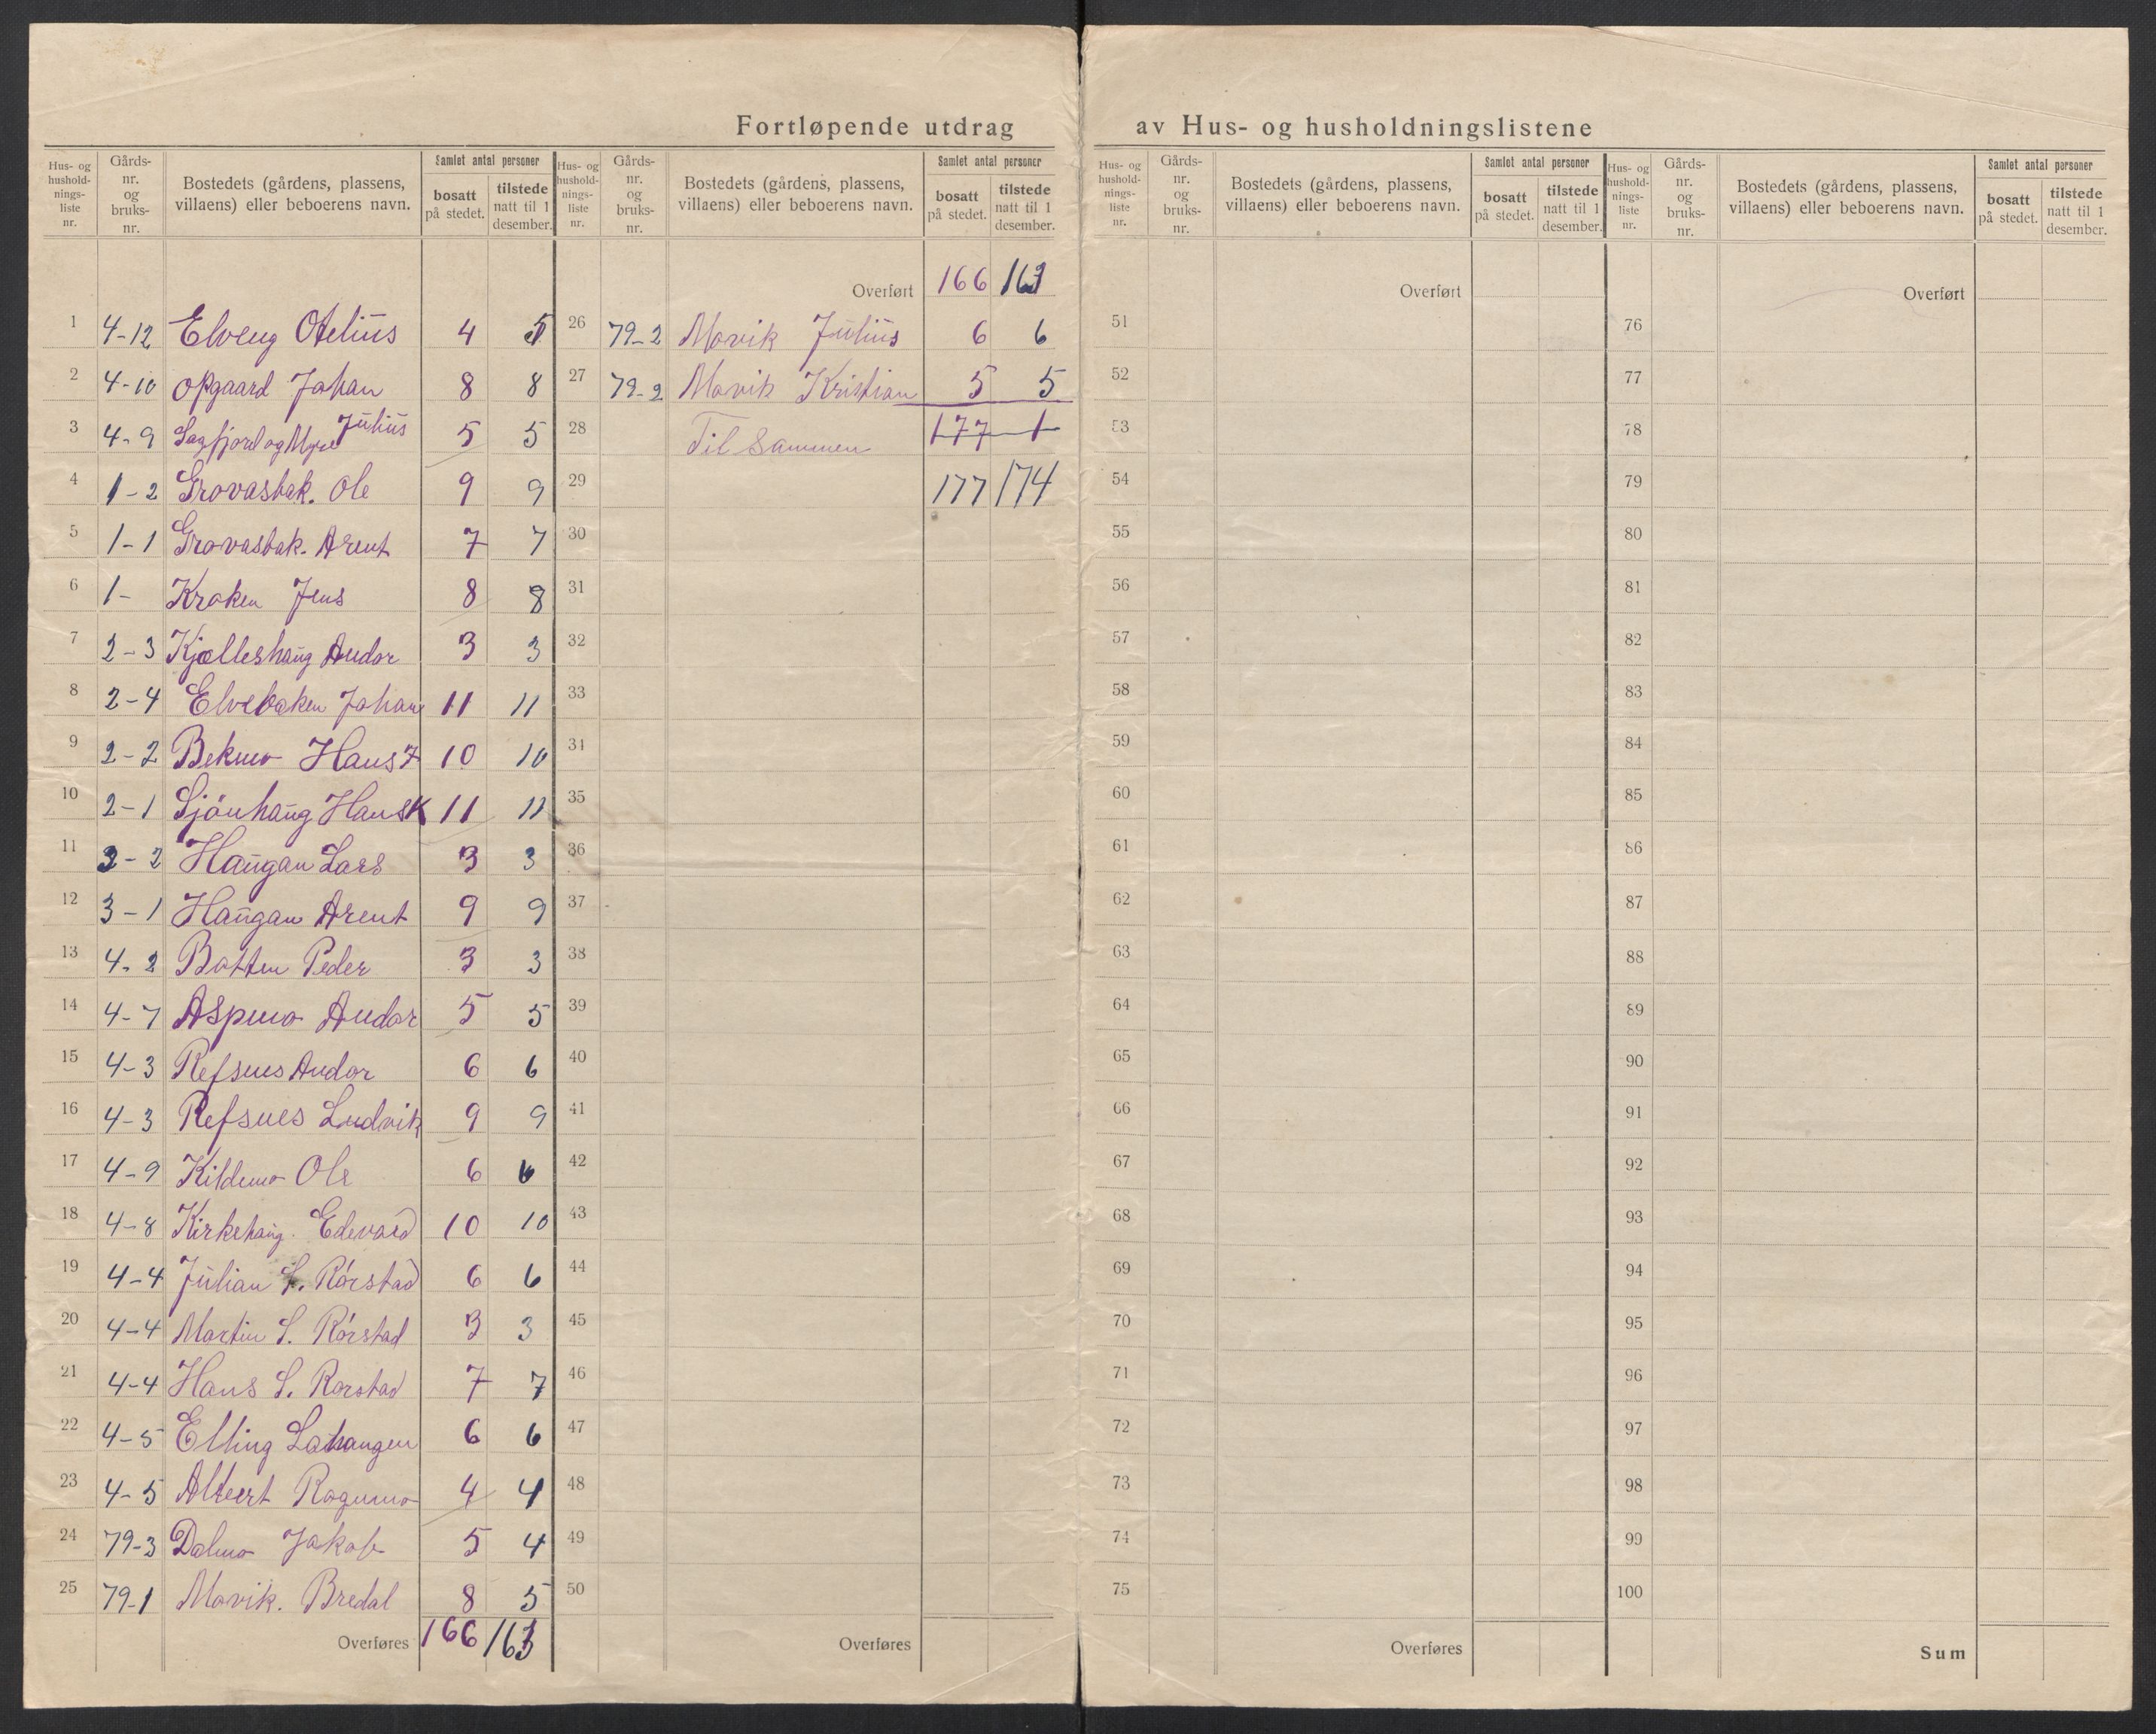 Fortløpende utdrag av Hus- og husholdningslistene
Hus- og husholdnings-liste nr. | Gårds-nr. og bruks-nr. | Bostedets (gårdens, plassens, villaens) eller beboerens navn. | Samlet antal personer | bosatt på stedet. | tilstede natt til 1 desember.
1 4-12 Elveng Otelius 4 5
2 4-10 Opgaard Johan 8 8
3 4-9 Sagfjord og Myre Julius 5 5
4 1-2 Grovasbak. Ole 9 9
5 1-1 Grovasbak. Arent 7 7
6 1- Kroken Jens 8 8
7 2-3 Kjelleshaug Andor 3 3
8 2-4 Elvebakken Johan 11 11
9 2-2 Bekmo Hans 7 10 10
10 2-1 Sjönhaug Hans K 11 11
11 3-2 Haugan Lars 3 3
12 3-1 Haugan Arent 9 9
13 4-2 Botten Peder 3 3
14 4-7 Aspmo Andor 5 5
15 4-3 Refsnes Andor 6 6
16 4-3 Refsnes Ludvik 9 9
17 4-9 Kildemo Ole 6 6
18 4-8 Kirkehaug. Edevard 10 10
19 4-4 Julian S. Rörstad 6 6
20 4-4 Martin S. Rörstad 3 3
21 4-4 Hans S. Rorstad 7 7
22 4-5 Elling Lahaugen 6 6
23 4-5 Albert Rognmo 4 4
24 79-3 Dalmo Jakob 5 4
25 79-1 Movik. Bredal 8 5
Overføres 166 163
Hus- og husholdnings-liste nr. | Gårds-nr. og bruks-nr. | Bostedets (gårdens, plassens, villaens) eller beboerens navn. | Samlet antal personer | bosatt på stedet. | tilstede natt til 1 desember.
Overført 166 163
26 79-2 Movik Julius 6 6
27 79-2 Movik Kristian 5 5
28 Til sammen 177 1
29 177 174
30
31
32
33
34
35
36
37
38
39
40
41
42
43
44
45
46
47
48
49
50
Overføres
Hus- og husholdnings-liste nr. | Gårds-nr. og bruks-nr. | Bostedets (gårdens, plassens, villaens) eller beboerens navn. | Samlet antal personer | bosatt på stedet. | tilstede natt til 1 desember.
Overført
51
52
53
54
55
56
57
58
59
60
61
62
63
64
65
66
67
68
69
70
71
72
73
74
75
Overføres
Hus- og husholdnings-liste nr. | Gårds-nr. og bruks-nr. | Bostedets (gårdens, plassens, villaens) eller beboerens navn. | Samlet antal personer | bosatt på stedet. | tilstede natt til 1 desember.
Overført
76
77
78
79
80
81
82
83
84
85
86
87
88
89
90
91
92
93
94
95
96
97
98
99
100
Sum